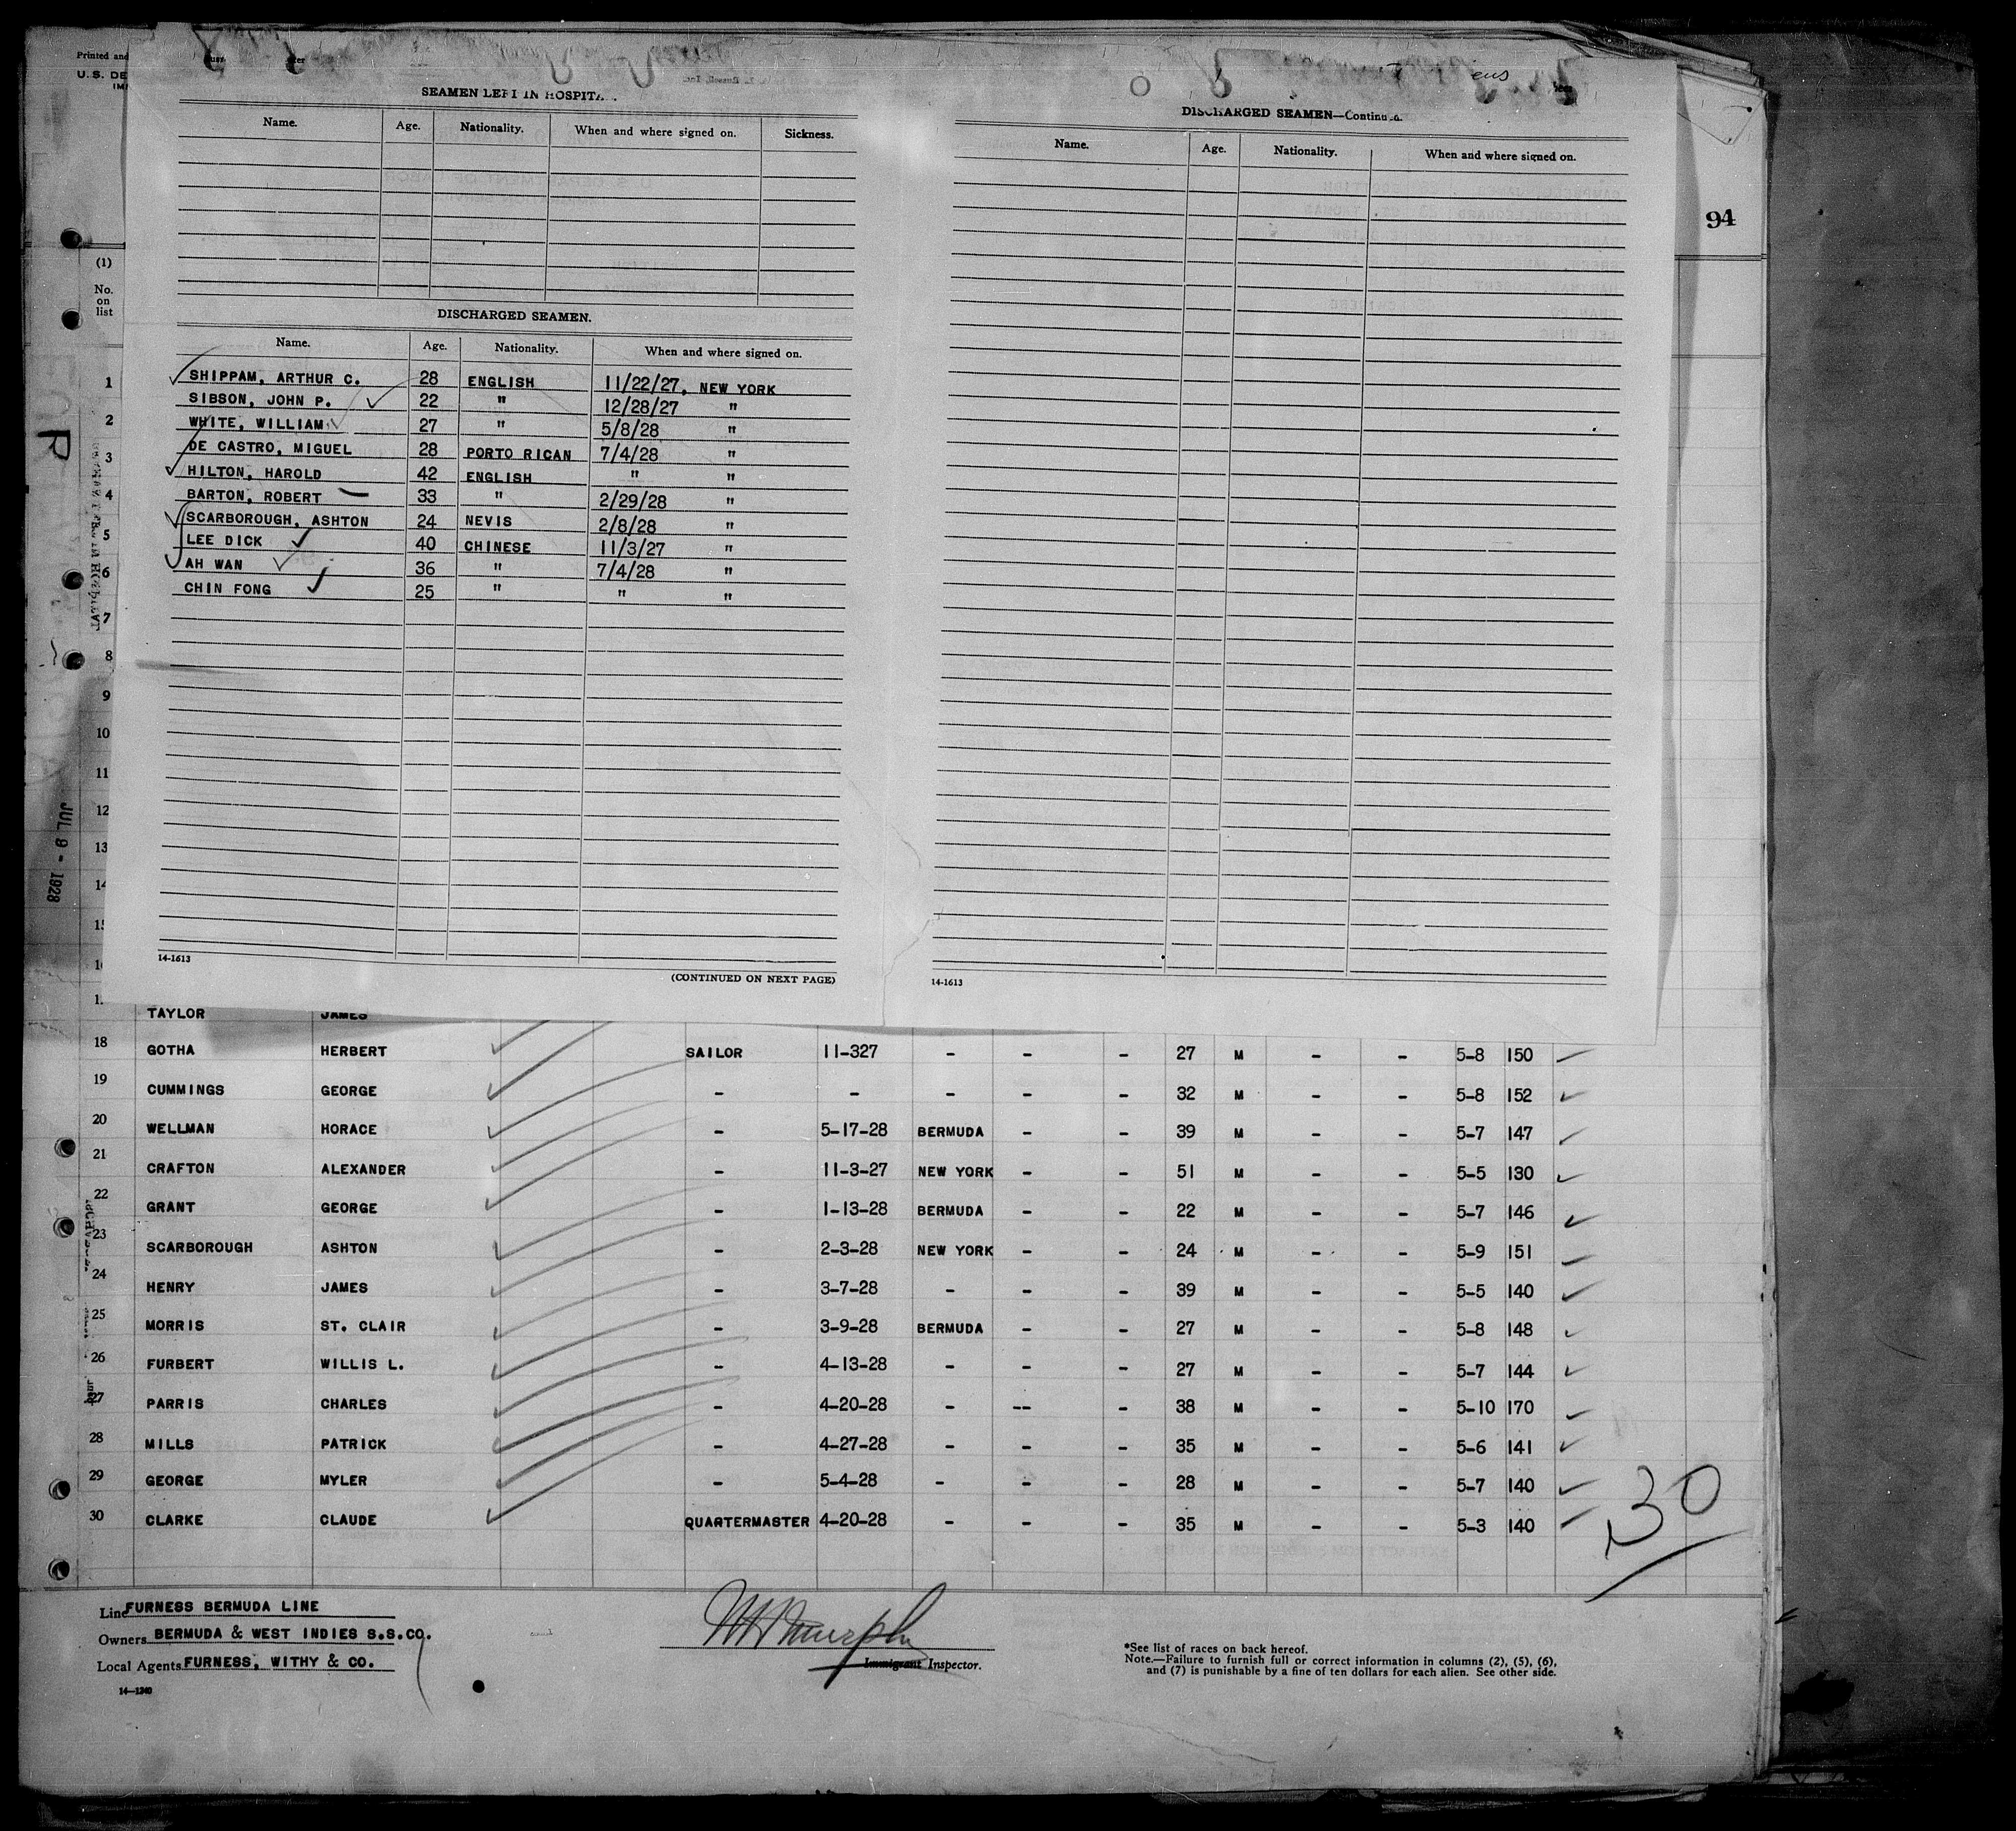 Printed and
U.S. DE
94
SEAMEN LEFT IN HOSPITA
Name. Age. Nationality. When and where signed on. Sickness.
DISCHARGED SEAMEN.
Name. Age. Nationality. When and where signed on.
SHIPPAM, ARTHUR C. 28 ENGLISH 11/22/27, NEW YORK
SIBSON, JOHN P. 22 " 12/28/27 "
WHITE, WILLIAM 27 " 5/8/28 "
DE CASTRO, MIGUEL 28 PORTO RICAN 7/4/28 "
HILTON, HAROLD 42 ENGLISH " "
BARTON, ROBERT 33 " 2/29/28 "
SCARBOROUGH, ASHTON 24 NEVIS 2/8/28 "
LEE DICK 40 CHINESE 11/3/27 "
AH WAN 36 " 7/4/28 "
CHIN FONG 25 " " "
14-1613
(CONTINUED ON NEXT PAGE)
DISCHARGED SEAMEN—Continued.
Name. Age. Nationality. When and where signed on.
14-1613
(1)
No.
on
list
1
2
3
4
5
6
7
8
9
10
11
12
13
14
15
JUL 9 - 1928
TAYLOR JAMES
18 GOTHA HERBERT SAILOR 11-327 - - - 27 M - - 5-8 150
19 CUMMINGS GEORGE - - - - - 32 M - - 5-8 152
20 WELLMAN HORACE - 5-17-28 BERMUDA - - 39 M - - 5-7 147
21 CRAFTON ALEXANDER - 11-3-27 NEW YORK - - 51 M - - 5-5 130
22 GRANT GEORGE - 1-13-28 BERMUDA - - 22 M - - 5-7 146
23 SCARBOROUGH ASHTON - 2-3-28 NEW YORK - - 24 M - - 5-9 151
24 HENRY JAMES - 3-7-28 - - - 39 M - - 5-5 140
25 MORRIS ST. CLAIR - 3-9-28 BERMUDA - - 27 M - - 5-8 148
26 FURBERT WILLIS L. - 4-13-28 - - - 27 M - - 5-7 144
27 PARRIS CHARLES - 4-20-28 - -- - 38 M - - 5-10 170
28 MILLS PATRICK - 4-27-28 - - - 35 M - - 5-6 141
29 GEORGE MYLER - 5-4-28 - - - 28 M - - 5-7 140
30 CLARKE CLAUDE QUARTERMASTER 4-20-28 - - - 35 M - - 5-3 140
30
Line FURNESS BERMUDA LINE
Owners BERMUDA & WEST INDIES S.S.CO.
Local Agents FURNESS, WITHY & CO.
14-1240
Immigrant Inspector.
*See list of races on back hereof.
Note.—Failure to furnish full or correct information in columns (2), (5), (6),
and (7) is punishable by a fine of ten dollars for each alien. See other side.